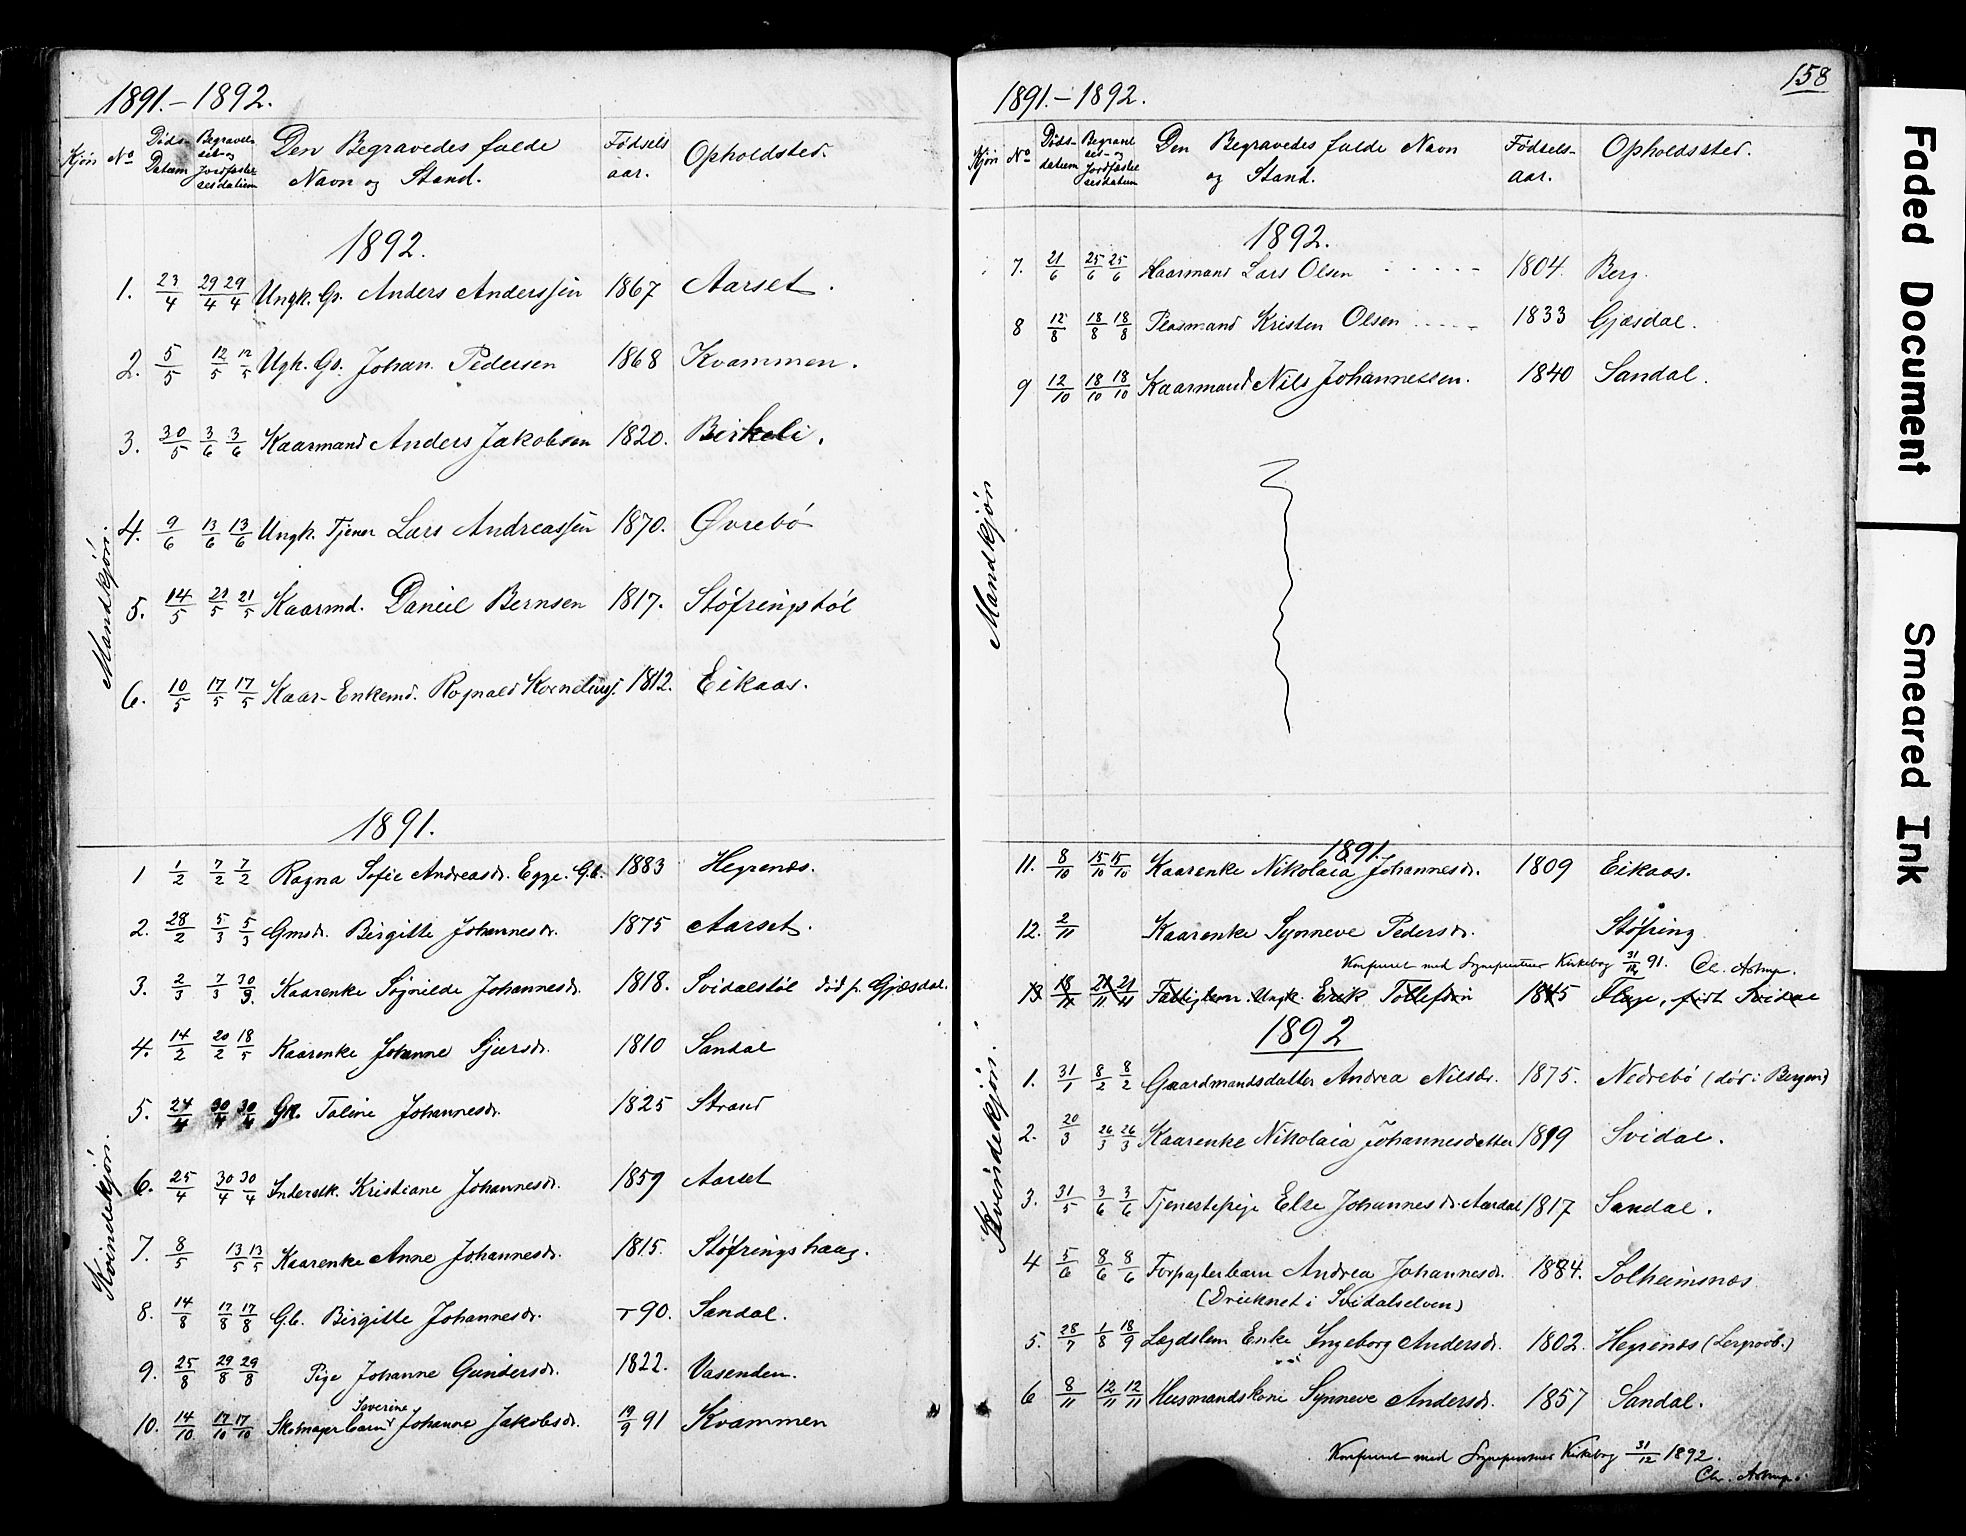 1891.-1892.
Kjøn No Døds-Datum Begravelses- og Jordfæstelsesdatum Den Begravedes fulde Navn og Stand. Fødsels aar. Opholdsted.
Mandkjøn.
1892.
1. 23/4 29/4 29/4 Ungk. Gs. Anders Anderssen 1867 Aarset.
2. 5/5 12/5 12/5 Ugk. Gs. Johan Pedersen 1868 Kvammen.
3. 30/5 3/6 3/6 Kaarmand Anders Jakobsen 1820. Birkeli.
4. 9/6 13/6 13/6 Ungk. Tjener Lars Andreassen 1870. Øvrebö
5. 14/5 21/5 21/5 Kaarmd. Daniel Bernsen 1817. Støfringstøl
6. 10/5 17/5 17/5 Kaar-Enkemd. Rognald Kornelius. 1812. Eikaas.
Kvindekjøn.
1891.
1 1/2 7/2 7/2 Ragna Sofie Andreasdr. Egge. Gb. 1883 Hegrenæs.
2. 28/2 5/3 5/3 Gmdr. Birgitte Johannesdr. 1875 Aarset.
3. 2/3 7/3 30/9. Kaarenke Søgnilde Johannesdr. 1818. Svidalstøl død p. Gjæsdal.
4. 14/2 20/2 18/5 Kaarenke Johanne Sjursdr. 1810 Sandal
5. 24/4 30/4 30/4 Gk. Taline Johannesdr. 1825 Strand
6. 25/4 30/4 30/4 Indersk. Kristiane Johannesdr. 1859 Aarset
7. 8/5 13/5 13/5 Kaarenke Anne Johannesdr. 1815. Støfringshaug.
8. 14/8 17/8 17/8 Gb. Birgitte Johannesdr. 90. Sandal.
9. 25/8 29/8 29/8 Pige Johanne Gundersdr. 1822. Vasenden.
Severine
10. 14/10 17/10 17/10 Skomagerbarn Johanne Jakobsdr. 19/9 91 Kvammen
158
1891.-1892.
Kjøn No Døds-datum Begravelses- og Jordfæstelsesdatum Den Begravedes fulde Navn og Stand. Fødsels-aar. Opholdssted.
Mandkjøn
1892.
7. 21/6 25/6 25/6 Kaarmand Lars Olsen 1804. Berg.
8 12/8 18/8 18/8 Plasmand Kristen Olsen 1833 Gjæsdal.
9 12/10 18/10 18/10 Kaarmand Nils Johannessen. 1840 Sandal.
Kvindekjøn.
1891.
11. 8/10 15/10 15/10 Kaarenke Nikolaia Johannesdr. 1809 Eikaas.
12. 2/11 Kaarenke Synneve Pedersdr. Støfring
Konfereret med Sognepræstens Kirkebog 31/12 91. Ch. Astrup.
13 18/11 21/11 21/11 Fattiglem. Ungk. Erik Tollefsen 1845 Flage, født Svidal
1892
1. 31/1 8/2 8/2 Gaardmandsdatter Andrea Nilsdr. 1875. Nedrebö (død i Bergen)
2. 20/3 26/3 26/3 Kaarenke Nikolaia Johannesdatter 1819 Svidal.
3. 31/5 3/6 3/6 Tjenestepige Else Johannesdr. Aardal 1817 Sandal.
4 5/6 8/6 8/6 Forpagterbarn Andrea Johannesdr. 1884. Solheimsnæs
(Drucknet i Svidalselven)
5. 28/7 1/8 18/9 Lægdslem Enke Ingeborg Andersdr. 1802. Hegrenæs
6 8/11 12/11 12/11 Husmandskone Synneve Andersdr. 1857 Sandal.
Konfereret med Sognepræstens Kirkebog 31/12 1892.
Chr. Astrup.
Faded Document
Smeared Ink